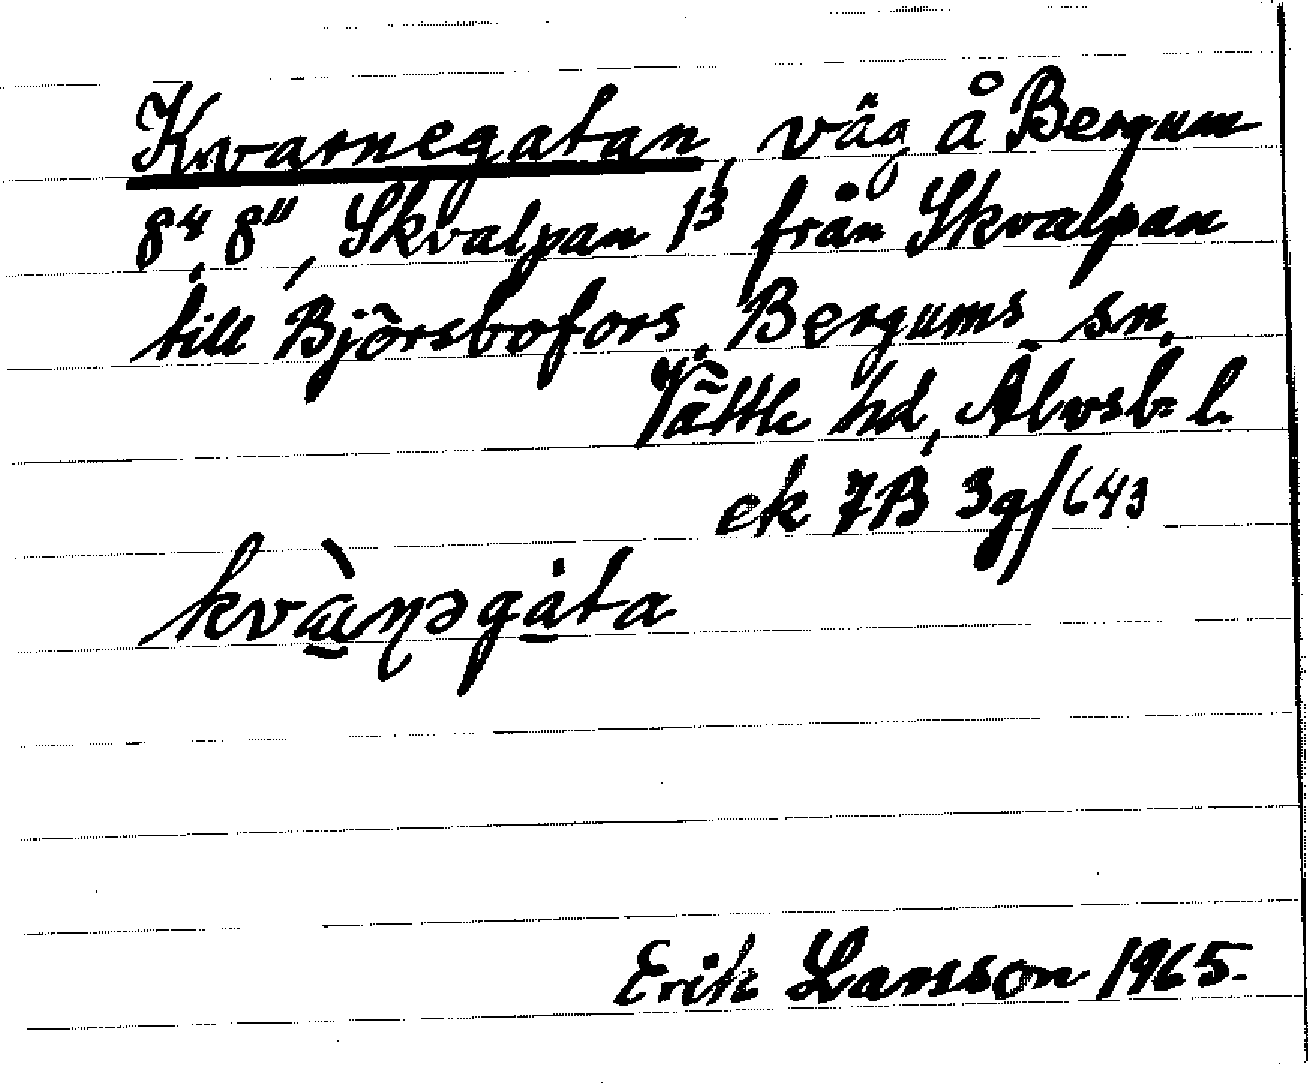 Kvarnegatan, väg å Bergum
8⁴, 8¹¹, Skvalpan 1³ från Skvalpan
till Björsbofors, Bergums sn,
Vättle hd, Älvsb. l.
ek 7B 3g/643
kvàṇəgáta
Erik Larsson 1965.